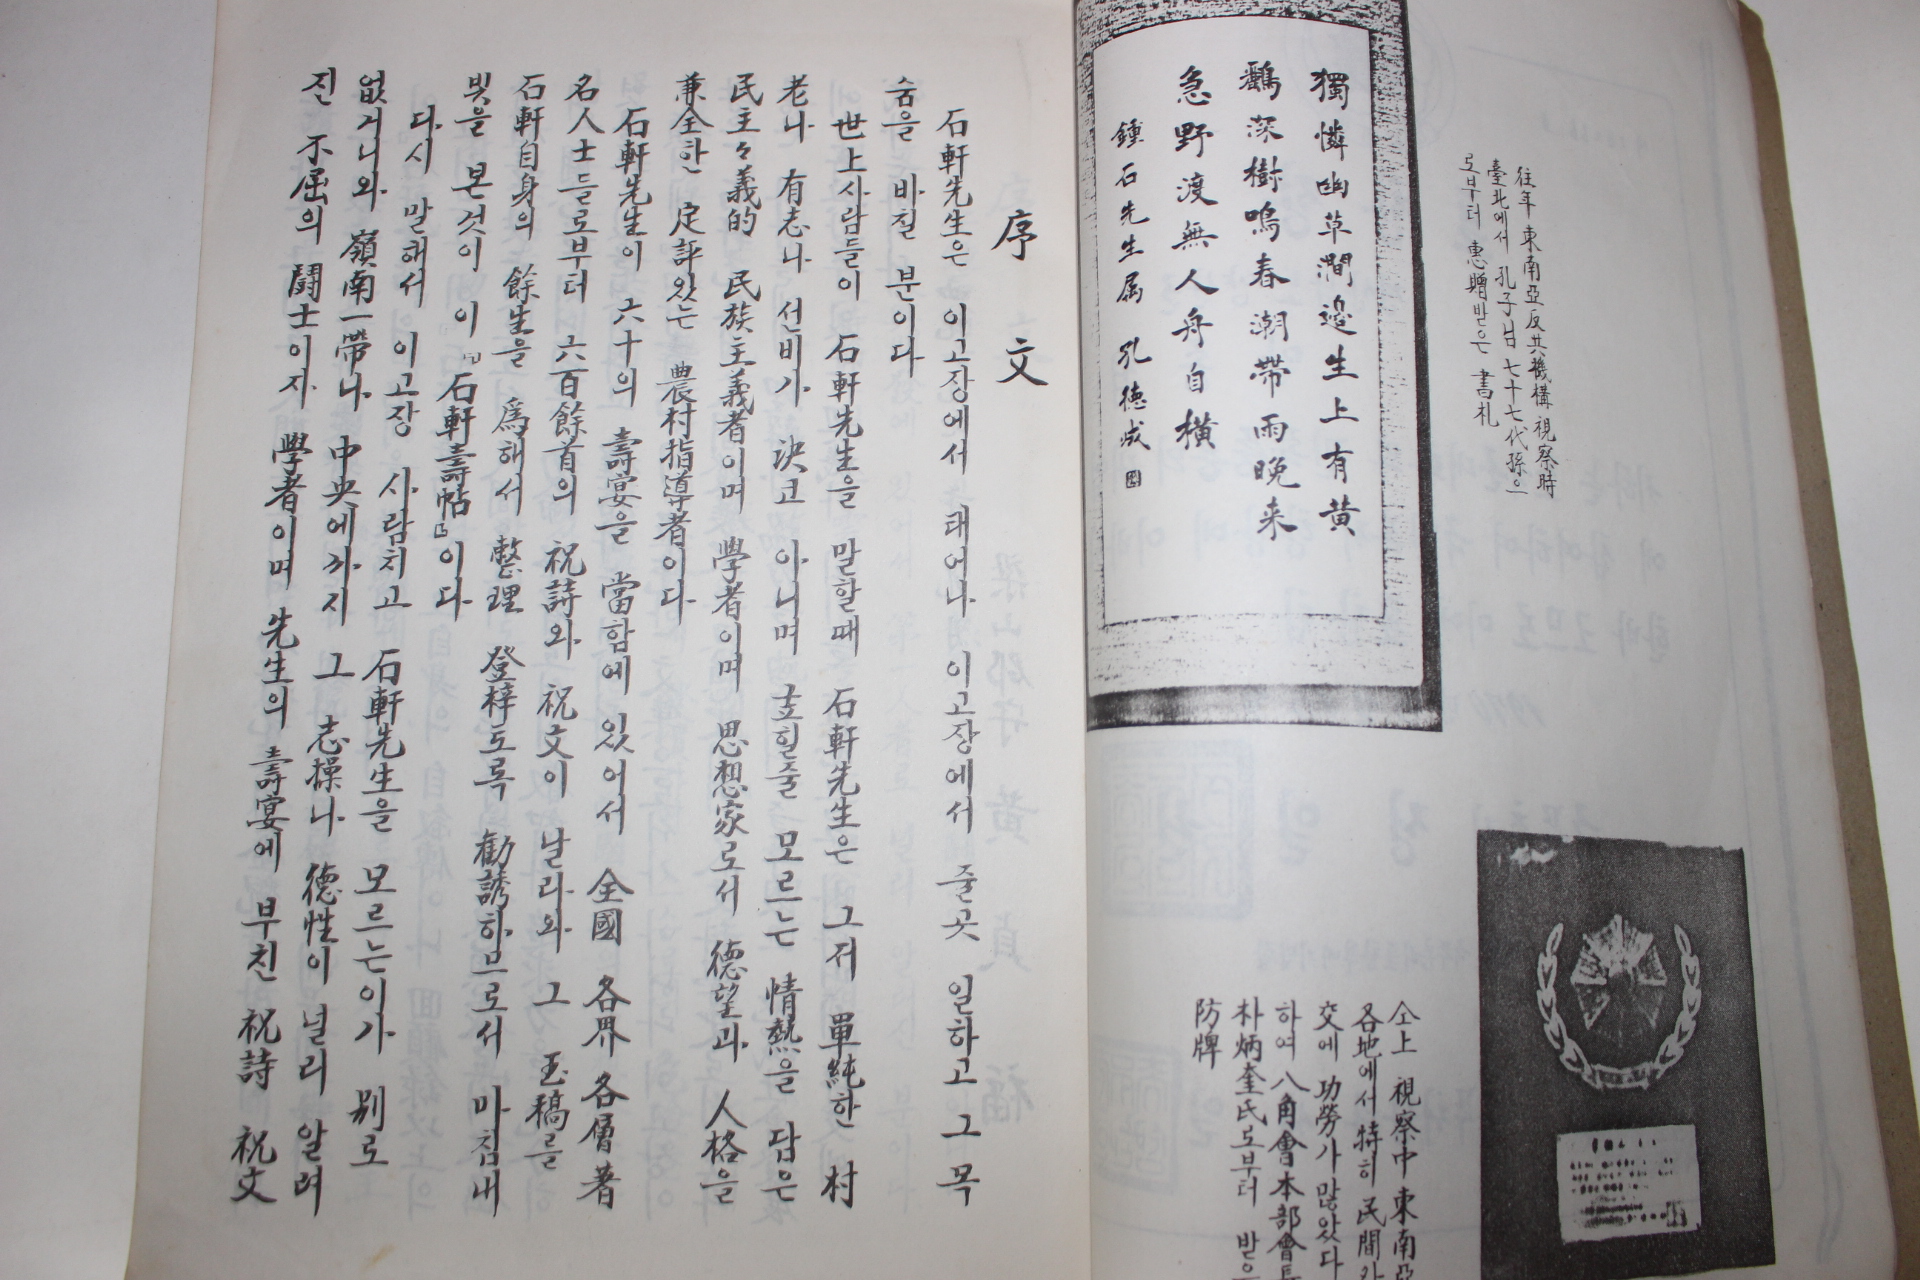 往年 東南亞反共機構 視察時
臺北에서 孔子님 七十七代孫으
로부터 惠贈받은 書札
獨憐幽草澗邊生上有黃
鸝深樹鳴春潮帶雨晚来
急野渡無人舟自橫
鍾石先生属 孔德成
仝上 視察中 東南亞
各地에서 特히 民間
交에 功勞가 많았다
하여 八角會本部會長
朴炳奎氏로부터 받은
防牌
序文
石軒先生은 이고장에서 태어나 이고장에서 줄곳 일하고 그 목
숨을 바칠 분이다
世上사람들이 石軒先生을 말할때 石軒先生은 그저 單純한 村
老나 有志나 선비가 決코 아니며 굽힐줄 모르는 情熱을 담은
民主々義的 民族主義者이며 學者이며 思想家로서 德望과 人格을
兼全한 定評있는 農村指導者이다
石軒先生이 六十의 壽宴을 當함에 있어서 全國 各界各層著
名人士들로부터 六百餘首의 祝詩와 祝文이 날라와 그 玉稿를
石軒自身의 餘生을 爲해서 整理 登梓도록 勸誘하므로서 마침내
빛을 본것이 이『石軒壽帖』이다
다시 말해서 이고장 사람치고 石軒先生을 모르는이가 別로
없거니와 嶺南一帶나 中央에까지 그 志操나 德性이 널리 알려
진 不屈의 鬪士이자 學者이며 先生의 壽宴에 부친 祝詩 祝文